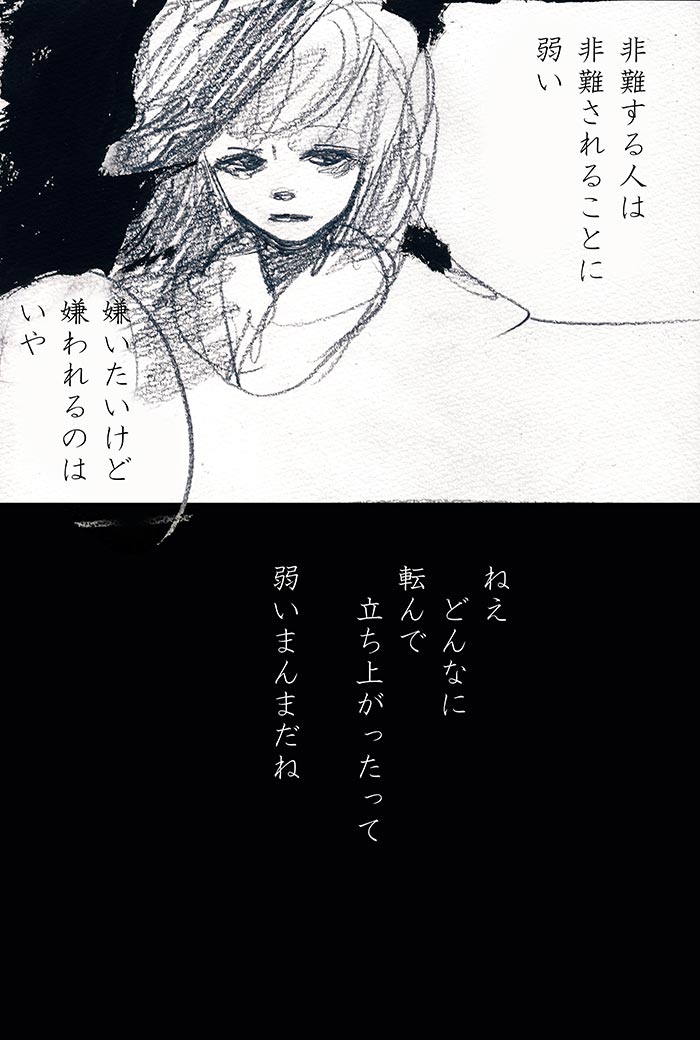 非難する人は
非難されることに
弱い
嫌いたいけど
嫌われるのは
いや
ねえ
どんなに
転んで
立ち上がったって
弱いまんまだね